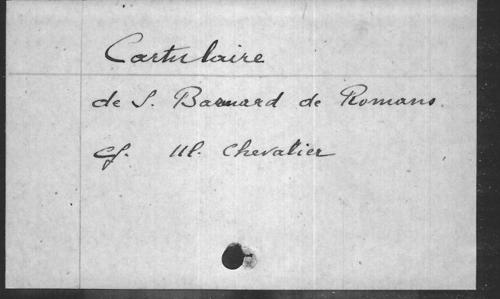 Cartulaire
de S. Barnard de Romans.
cf. Ul. Chevalier